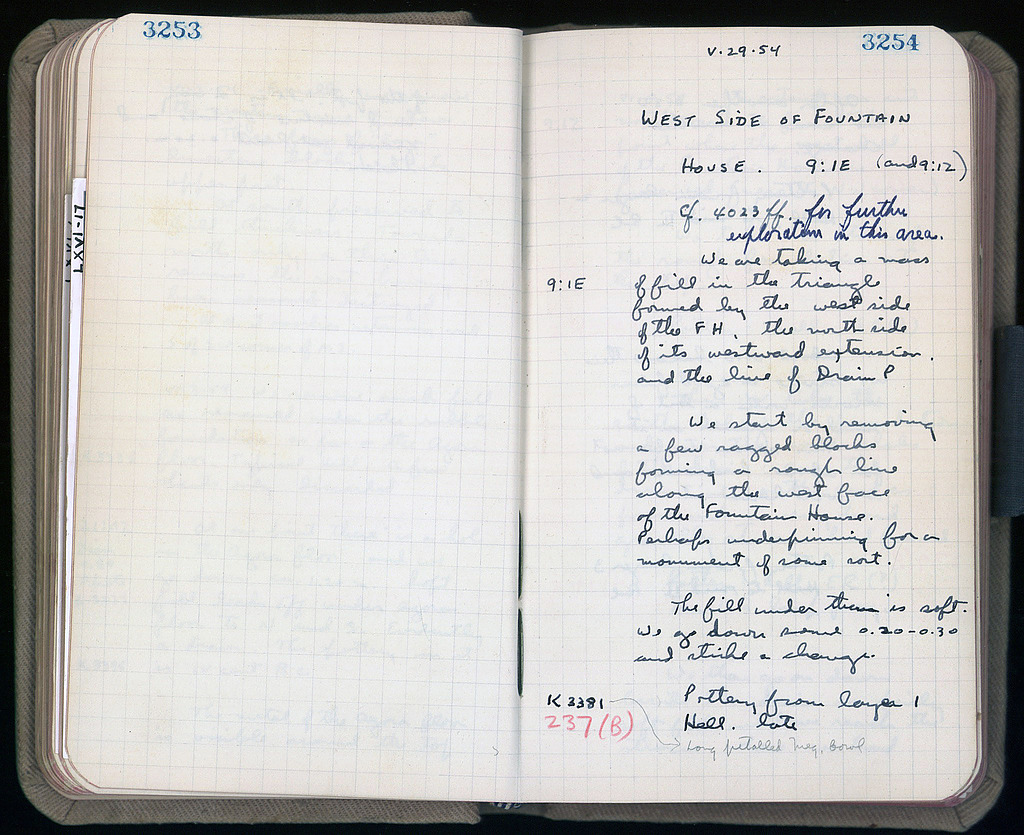 3253
LXVI-17
3254
V.29.54
WEST SIDE OF FOUNTAIN
HOUSE. 9:1E (and 9:12)
Cf. 4023 ff. for further
exploration in this area.
We are taking a mass
9:1E
of fill in the triangle
formed by the west side
of the FH, the north side
of its westward extension,
and the line of Drain P
We start by removing
a few ragged blocks
forming a rough line
along the west face
of the Fountain House.
Perhaps underpinning for a
monument of some sort.
The fill under them is soft.
We go down some 0.20-0.30
and strike a change.
K 3381
237 (B)
Pottery from layer 1
Hell. late
Long petalled Meg. Bowl